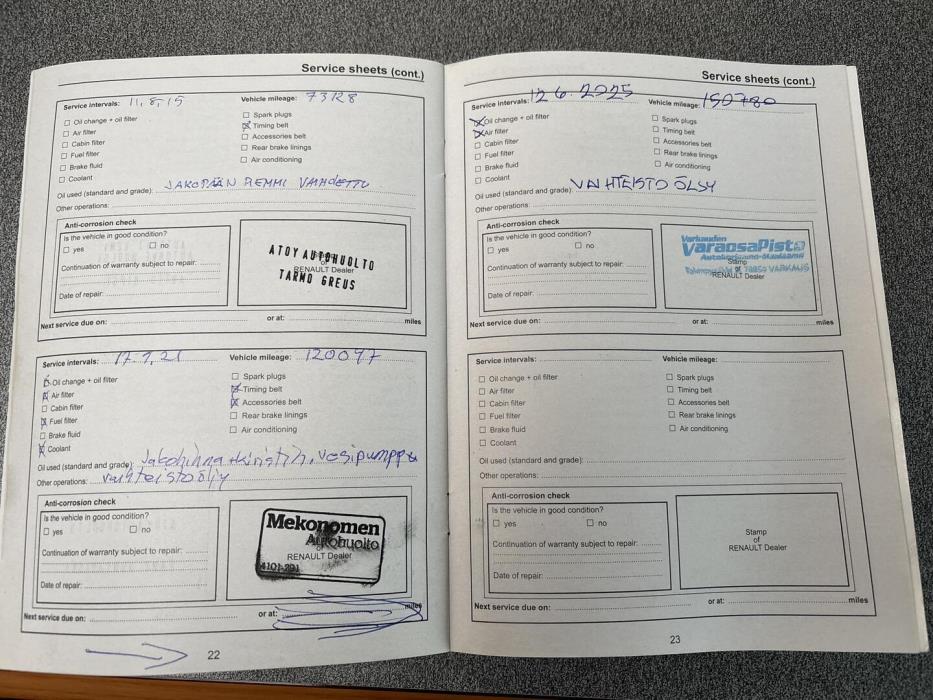 Service sheets (cont.)
Service intervals: 11.8.15 Vehicle mileage: 73128
Oil change + oil filter
Air filter
Cabin filter
Fuel filter
Brake fluid
Coolant
Spark plugs
Timing belt
Accessories belt
Rear brake linings
Air conditioning
Oil used (standard and grade): JAKOPÄÄN REMMI VAIHDETTU
Other operations:
Anti-corrosion check
Is the vehicle in good condition?
yes no
Continuation of warranty subject to repair:
Date of repair:
ATOY AUTOHUOLTO
of
RENAULT Dealer
TARMO GREUS
Next service due on: or at: miles
Service intervals: 17.9.21 Vehicle mileage: 120097
Oil change + oil filter
Air filter
Cabin filter
Fuel filter
Brake fluid
Coolant
Spark plugs
Timing belt
Accessories belt
Rear brake linings
Air conditioning
Oil used (standard and grade): Jakohihna + kiristin, vesipumppu
Other operations: vaihteistoöljy
Anti-corrosion check
Is the vehicle in good condition?
yes no
Continuation of warranty subject to repair:
Date of repair:
Mekonomen
Autohuolto
RENAULT Dealer
4101-291
Next service due on: or at: miles
22
Service sheets (cont.)
Service intervals: 12.6.2025 Vehicle mileage: 150780
Oil change + oil filter
Air filter
Cabin filter
Fuel filter
Brake fluid
Coolant
Spark plugs
Timing belt
Accessories belt
Rear brake linings
Air conditioning
Oil used (standard and grade): VAIHTEISTO ÖLJY
Other operations:
Anti-corrosion check
Is the vehicle in good condition?
yes no
Continuation of warranty subject to repair:
Date of repair:
Varkauden
VaraosaPiste
Stamp
of 78850 VARKAUS
RENAULT Dealer
Next service due on: or at: miles
Service intervals: Vehicle mileage:
Oil change + oil filter
Air filter
Cabin filter
Fuel filter
Brake fluid
Coolant
Spark plugs
Timing belt
Accessories belt
Rear brake linings
Air conditioning
Oil used (standard and grade):
Other operations:
Anti-corrosion check
Is the vehicle in good condition?
yes no
Continuation of warranty subject to repair:
Date of repair:
Stamp
of
RENAULT Dealer
Next service due on: or at: miles
23